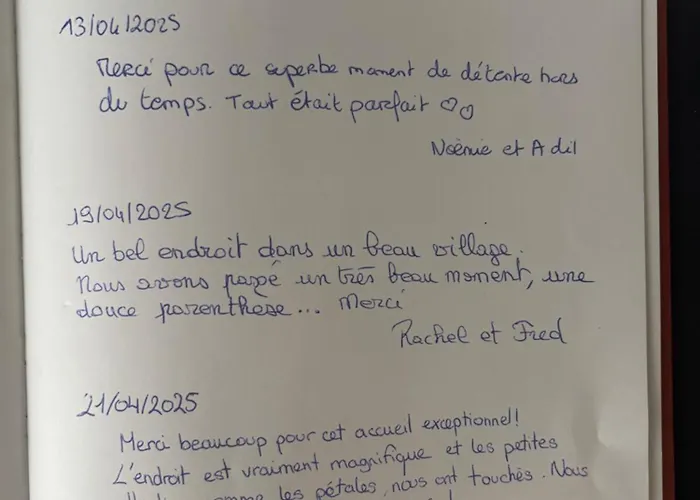 13/04/2025
Merci pour ce superbe moment de détente hors
du temps. Tout était parfait ♡♡
Noémie et Adil
19/04/2025
Un bel endroit dans un beau village.
Nous avons passé un très beau moment, une
douce parenthèse... Merci
Rachel et Fred
21/04/2025
Merci beaucoup pour cet accueil exceptionnel!
L'endroit est vraiment magnifique et les petites
comme les pétales, nous ont touchés. Nous